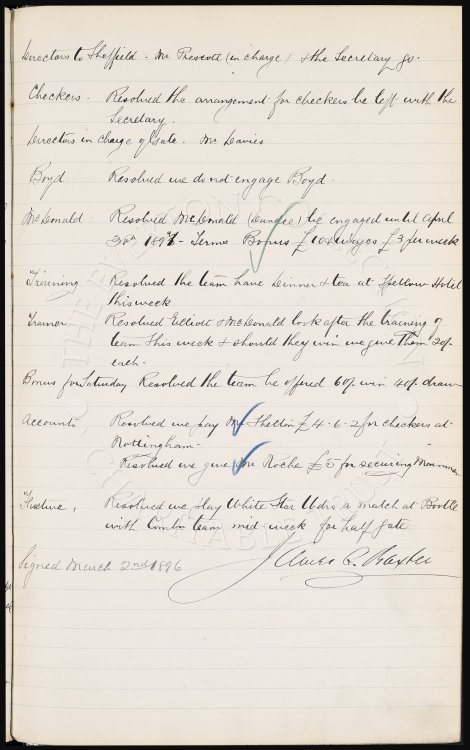 Directors to Sheffield - Mr Prescott (in charge) & the Secretary go.
Checkers. Resolved the arrangement for checkers be left with the
Secretary.
Directors in charge of Gate. Mr Davies
Boyd Resolved we do not engage Boyd.
McDonald. Resolved McDonald (Dundee) be engaged until April
30th 1897 - Terms Bonus £10 & wages £3 per week
Training Resolved the team have dinner & tea at Spellow Hotel
this week
Trainer Resolved Elliott & McDonald look after the training of
team this week & should they win we give them 20/-
each.
Bonus for Saturday Resolved the team be offered 60/- win 40/- draw
Accounts, Resolved we pay Mr Shelton £4-6-2 for checkers at
Nottingham.
Resolved we give Mr Roche £5 for securing
Fixture, Resolved we play White Star Wdrs a match at Bootle
with Combn team mid-week for half gate
Signed March 2nd 1896 James C. Baxter
THE EVERTON COLLECTION
CHARITABLE TRUST